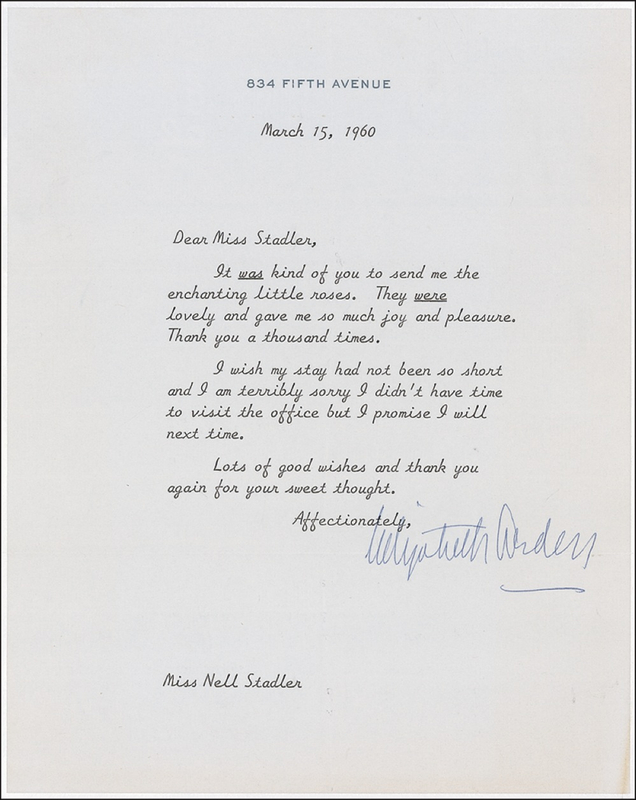 834 FIFTH AVENUE
March 15, 1960
Dear Miss Stadler,
It was kind of you to send me the
enchanting little roses. They were
lovely and gave me so much joy and pleasure.
Thank you a thousand times.
I wish my stay had not been so short
and I am terribly sorry I didn't have time
to visit the office but I promise I will
next time.
Lots of good wishes and thank you
again for your sweet thought.
Affectionately,
Elizabeth Arden
Miss Nell Stadler